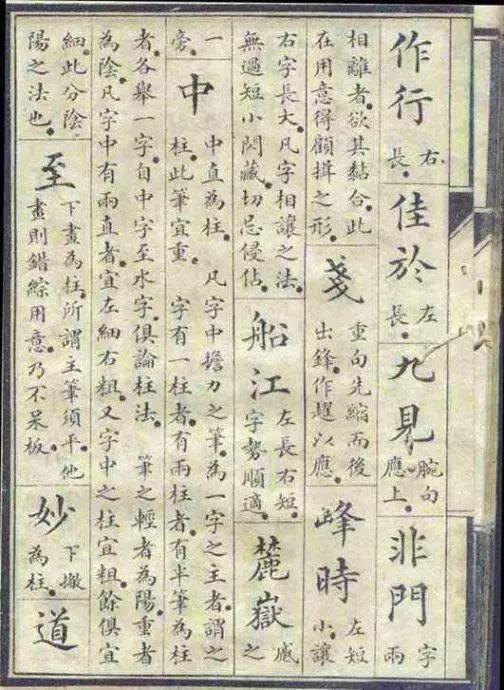 作行
右
長。
佳於
左
長。
九見
腕向
應上。
非門
字
兩
相離者。欲其黏合。此
在用意得顧揖之形。
戔
重向先縮而後
出鋒作趯以應。
峰時
左短
小讓
右字長大。凡字相讓之法。
無過短小閃藏。切忌侵佔。
船江
左長右短。
字勢順適。
麓嶽
之
一
旁。
中
中直為柱。凡字中擔力之筆。為一字之主者。謂之
柱。此筆宜重。字有一柱者。有兩柱者。有半筆為柱
者。各舉一字。自中字至水字。俱論柱法。筆之輕者為陽。重者
為陰。凡字中有兩直者。宜左細右粗。又字中之柱宜粗。餘俱宜
細。此分陰
陽之法也。
至
下畫為柱。所謂主筆須平。他
畫則錯綜用意。乃不呆板。
妙
下撇
為柱。
道